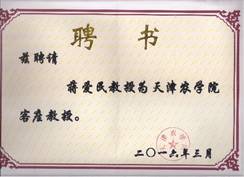 聘书
兹聘请
蒋爱民教授为天津农学院
客座教授。
天津农学院
二〇一六年三月